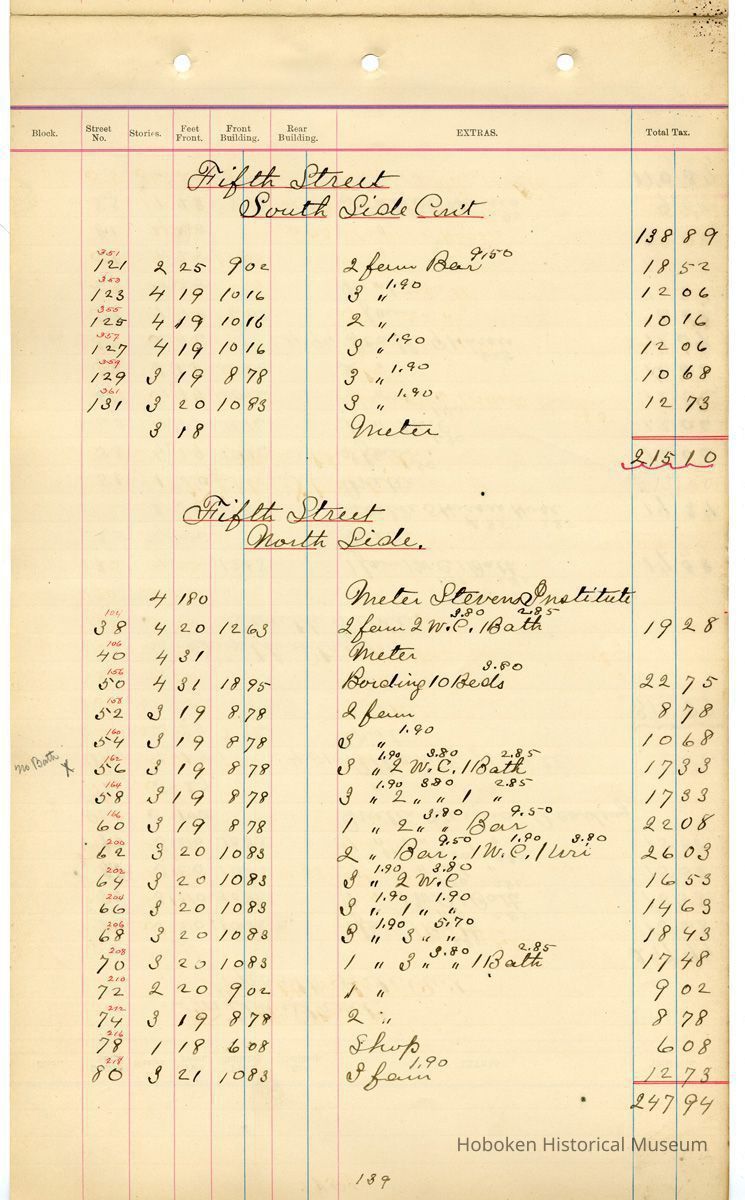 Block. Street No. Stories. Feet Front. Front Building. Rear Building. EXTRAS. Total Tax.
Fifth Street
South Side Con't
138 89
351
121 2 25 9 02 2 fam Bar 9.50 18 52
353
123 4 19 10 16 3 " 1.90 12 06
355
125 4 19 10 16 2 " 10 16
357
127 4 19 10 16 3 " 1.90 12 06
359
129 3 19 8 78 3 " 1.90 10 68
361
131 3 20 10 83 3 " 1.90 12 73
3 18 Meter
215 10
Fifth Street
North Side.
4 180 Meter Stevens Institute
104
38 4 20 12 63 2 fam 2 W.C. 3.80 1 Bath 2.85 19 28
106
40 4 31 Meter
156
50 4 31 18 95 Bording 10 Beds 3.80 22 75
158
52 3 19 8 78 2 fam 8 78
160
54 3 19 8 78 3 " 1.90 10 68
162
no Bath x 56 3 19 8 78 3 " 1.90 2 W.C. 3.80 1 Bath 2.85 17 33
164
58 3 19 8 78 3 " 1.90 2 " " 3.80 1 " 2.85 17 33
166
60 3 19 8 78 1 " 2 " " 3.80 Bar 9.50 22 08
200
62 3 20 10 83 2 " Bar, 9.50 1 W.C. 1.90 1 Uri 3.80 26 03
202
64 3 20 10 83 3 " 1.90 2 W.C 3.80 16 53
204
66 3 20 10 83 3 " 1.90 1 " " 1.90 14 63
206
68 3 20 10 83 3 " 1.90 3 " " 5.70 18 43
208
70 3 20 10 83 1 " 3 " " 3.80 1 Bath 2.85 17 48
210
72 2 20 9 02 1 " 9 02
212
74 3 19 8 78 2 " 8 78
216
78 1 18 6 08 Shop 6 08
218
80 3 21 10 83 3 fam 1.90 12 73
247 94
Hoboken Historical Museum
139